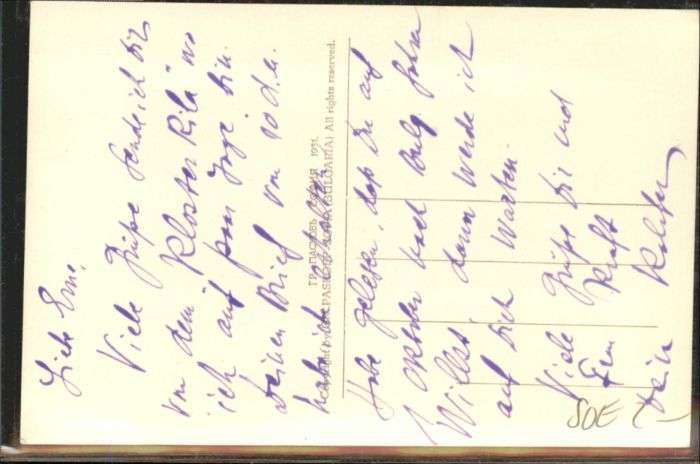 Liebe Erne.
Viele Grüße sende ich dir
von dem Kloster Rila wo
ich auf paar Tage bin.
Deinen Brief von 10 d.M.
habe ich erhalten
Habe gelesen, dass Du auf
1 Oktober nach Bulg. fahren
Willst, dann werde ich
auf Dich warten.
Viele Grüße Dir und
Dein
ГР. ПАСКОВЪ СОФИЯ 1931.
Copyright by GR. PASKOFF SOFIA (BULGARIA) All rights reserved.
SOE 2-